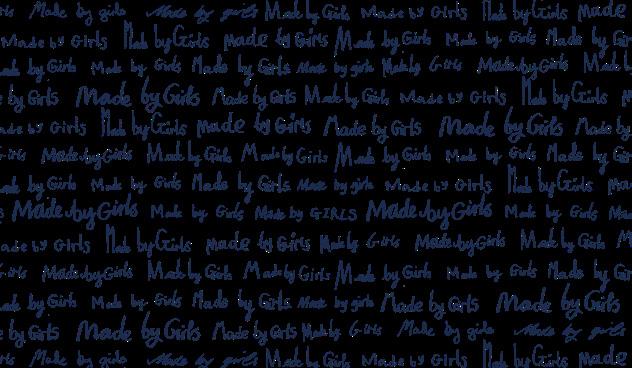 Made by girls Made by girls Made by Girls Made by Girls Made by Girls made
Made by Girls Made by Girls made by Girls Made by Girls Made by Girls Made by
by Girls Made by Girls Made by Girls Made by girls Made by Girls Made by Girls Made b
by Girls Made by Girls Made by Girls Made by Girls Made by Girls Made by Girls
by Girls Made by Girls made by Girls Made by Girls Made by Girls Made by
Girls Made by Girls Made by Girls Made by Girls Made by Girls Made by Girls Made by
by Girls Made by Girls Made by Girls Made by girls Made by Girls Made by Girls
Made by Girls Made by Girls Made by GIRLS Made by Girls Made by Girls
by Girls Made by Girls made by Girls Made by Girls Made by Girls Made by Girls
Girls Made by Girls Made by Girls Made by Girls Made by Girls Made by Girls Made by
by Girls Made by Girls Made by Girls Made by girls Made by Girls Made by Girls
by Girls Made by Girls Made by Girls Made by Girls Made by girls Made by girls
Made by girls Made by girls Made by Girls Made by Girls Made by Girls made